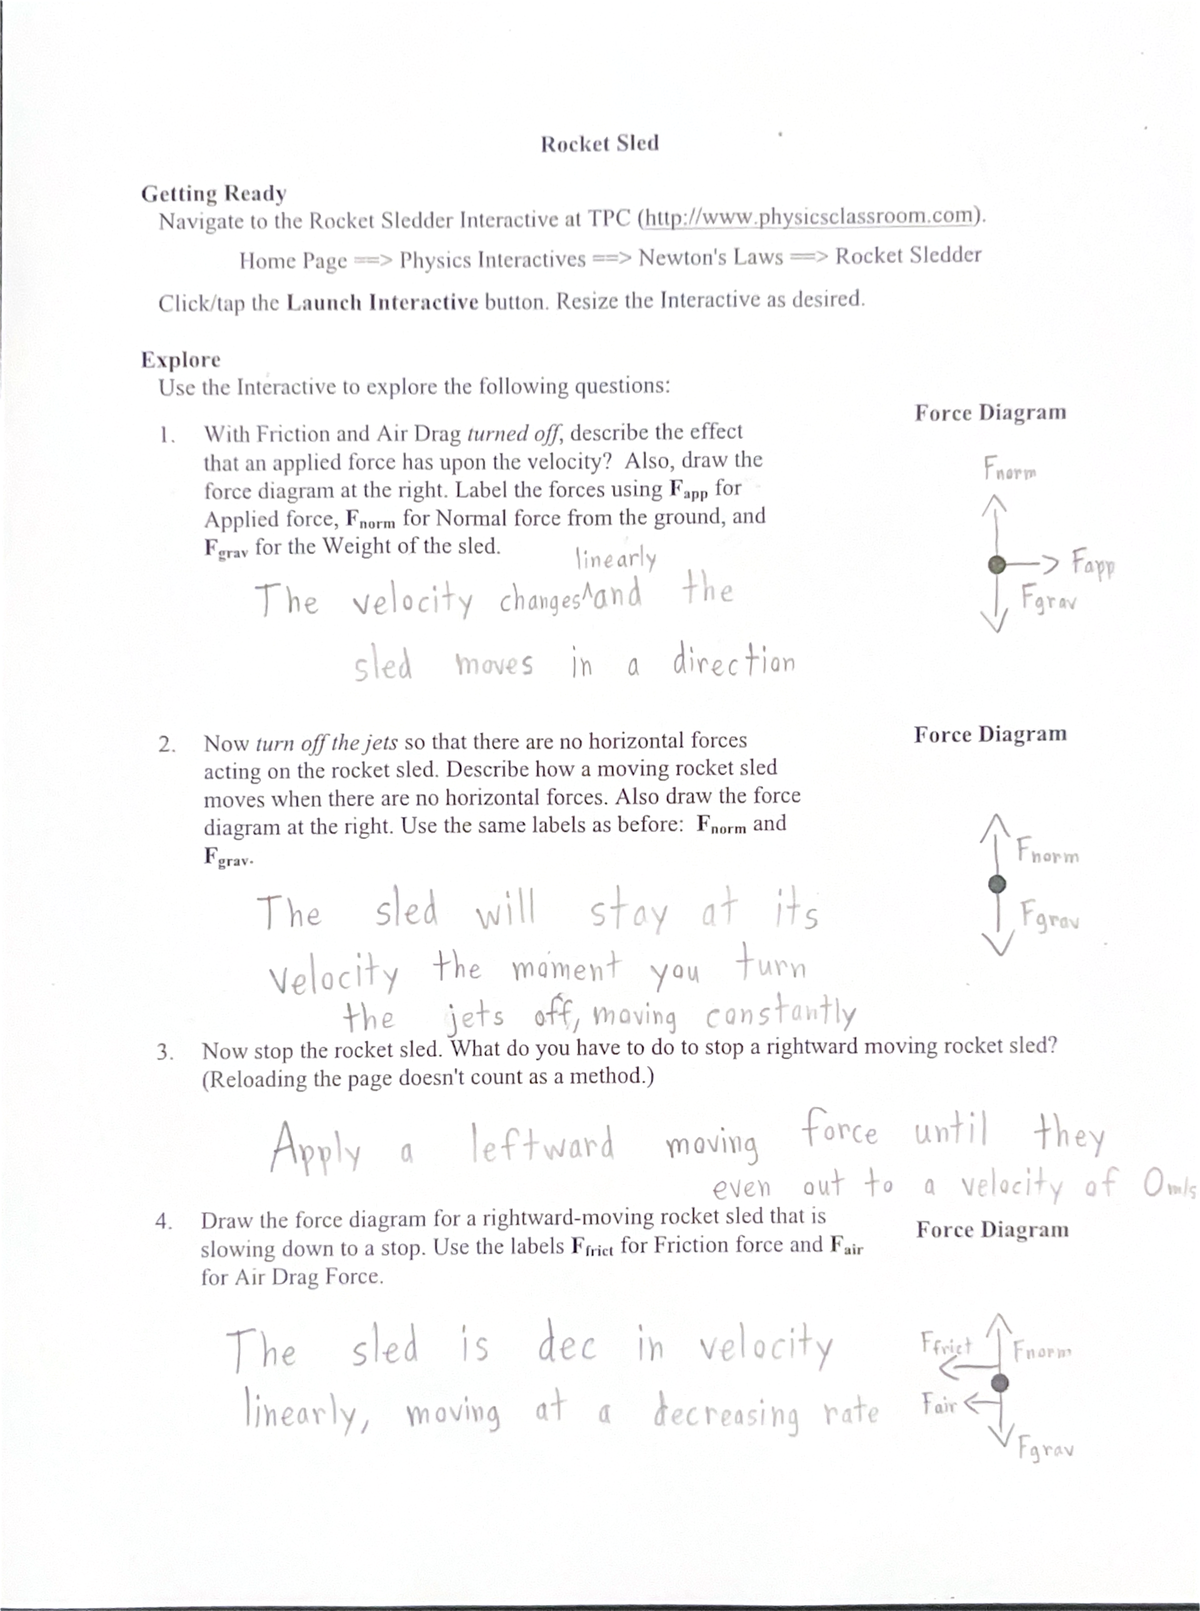 Rocket Sled
Getting Ready
Navigate to the Rocket Sledder Interactive at TPC (http://www.physicsclassroom.com).
Home Page ==> Physics Interactives ==> Newton's Laws ==> Rocket Sledder
Click/tap the Launch Interactive button. Resize the Interactive as desired.
Explore
Use the Interactive to explore the following questions:
Force Diagram
1. With Friction and Air Drag turned off, describe the effect
that an applied force has upon the velocity? Also, draw the
force diagram at the right. Label the forces using Fapp for
Applied force, Fnorm for Normal force from the ground, and
Fgrav for the Weight of the sled.
linearly
The velocity changes^and the
sled moves in a direction
Fnorm
Fapp
Fgrav
2. Now turn off the jets so that there are no horizontal forces
acting on the rocket sled. Describe how a moving rocket sled
moves when there are no horizontal forces. Also draw the force
diagram at the right. Use the same labels as before: Fnorm and
Fgrav.
Force Diagram
Fnorm
Fgrav
The sled will stay at its
velocity the moment you turn
the jets off, moving constantly
3. Now stop the rocket sled. What do you have to do to stop a rightward moving rocket sled?
(Reloading the page doesn't count as a method.)
Apply a leftward moving force until they
even out to a velocity of 0m/s
4. Draw the force diagram for a rightward-moving rocket sled that is
slowing down to a stop. Use the labels Ffrict for Friction force and Fair
for Air Drag Force.
Force Diagram
The sled is dec in velocity
linearly, moving at a decreasing rate
Ffrict
Fnorm
Fair
Fgrav